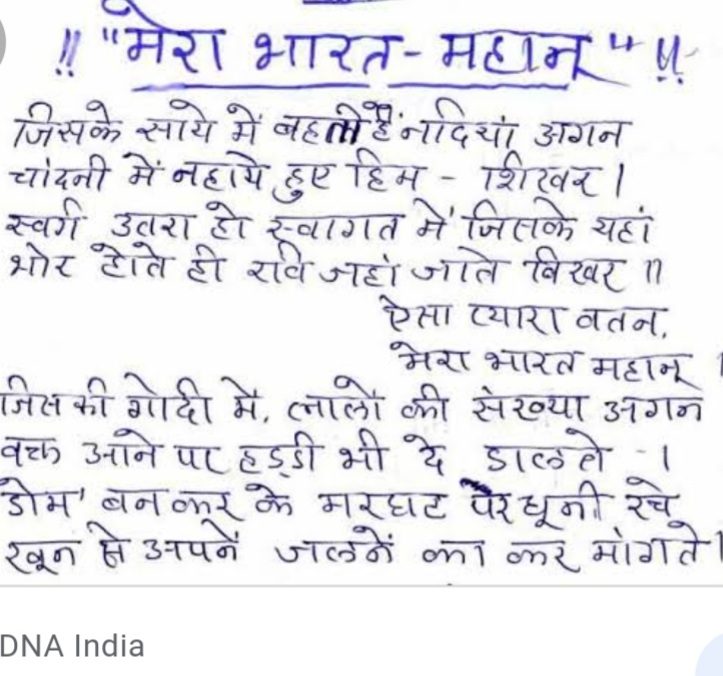 !! "मेरा भारत - महान्" !!
जिसके साये में बहती हैं नदियां अगन
चांदनी में नहाये हुए हिम - शिखर ।
स्वर्ग उतरा हो स्वागत में जिसके यहां
भोर होते ही रवि जहां जाते बिखर ॥
ऐसा प्यारा वतन,
मेरा भारत महान् ।
जिस की गोदी में, लालों की संख्या अगन
वक्त आने पर हड्डी भी दे डालते - ।
डोम' बन कर के मरघट पर धूनी रचे
खून से अपनें जलनें का कर मांगते ।
DNA India